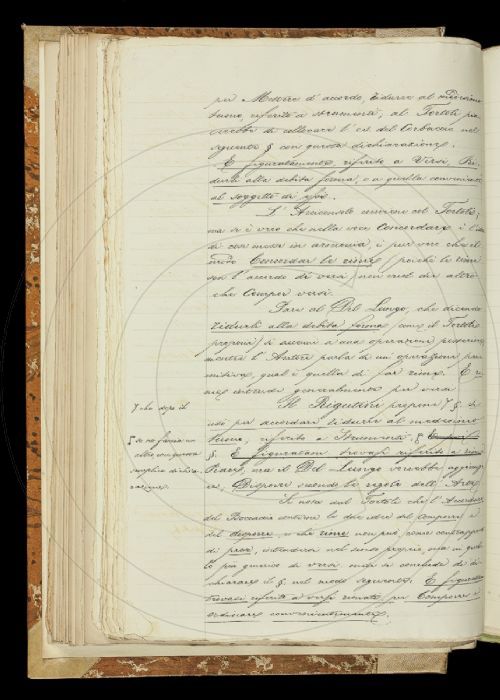 per Mettere d'accordo, Ridurre al medesimo
tuono, riferito a strumenti, al Tortoli pia
cerebbe di collocare l'es. del Corbaccio nel
seguente § con questa dichiarazione.
E figuratamente riferito a Versi, Ri-
durli alla debita forma, o a quella conveniente
al soggetto di essi.
L'Arcangeli conviene col Tortoli,
ma se è vero che nella voce Concordare è l'idea
di cosa messa in armonia, è pur vero che il
modo Concordar le rime, poichè le rime
son l'accordo dei versi, non vuol dir altro
che Compor versi.
Pare al Del Lungo, che dicendo
ridurli alla debita forma (come il Tortoli
propone) si accenni a una operazione posteriore
mentre l'Autore parla di un'operazione pri-
mitiva, qual è quella di far rime. E ri-
me intende generalmente per versi
Il Rigutini propone
usò per accordare Ridurre al medesimo
tuono, riferito a Strumenti, §
§. E figuratam. trovasi riferito a rime
ma il Del Lungo vorrebbe aggiun-
ere, Disporre secondo le regole dell'Arte.
Si nota dal Tortoli che l'Accordare
del Boccaccio contiene le due idee del Comporre e
del disporre, e che rime non può, come contrapposto
di prose, intendersi nel senso proprio, ma in quel-
lo più generico di versi onde si conclude di di-
chiarare il § nel modo seguente. E figuratam.
trovasi riferito a versi rimati, per Comporre e
ordinare convenientemente.
che dopo il
se ne faccia un
altro con questa
semplice dichia-
razione.